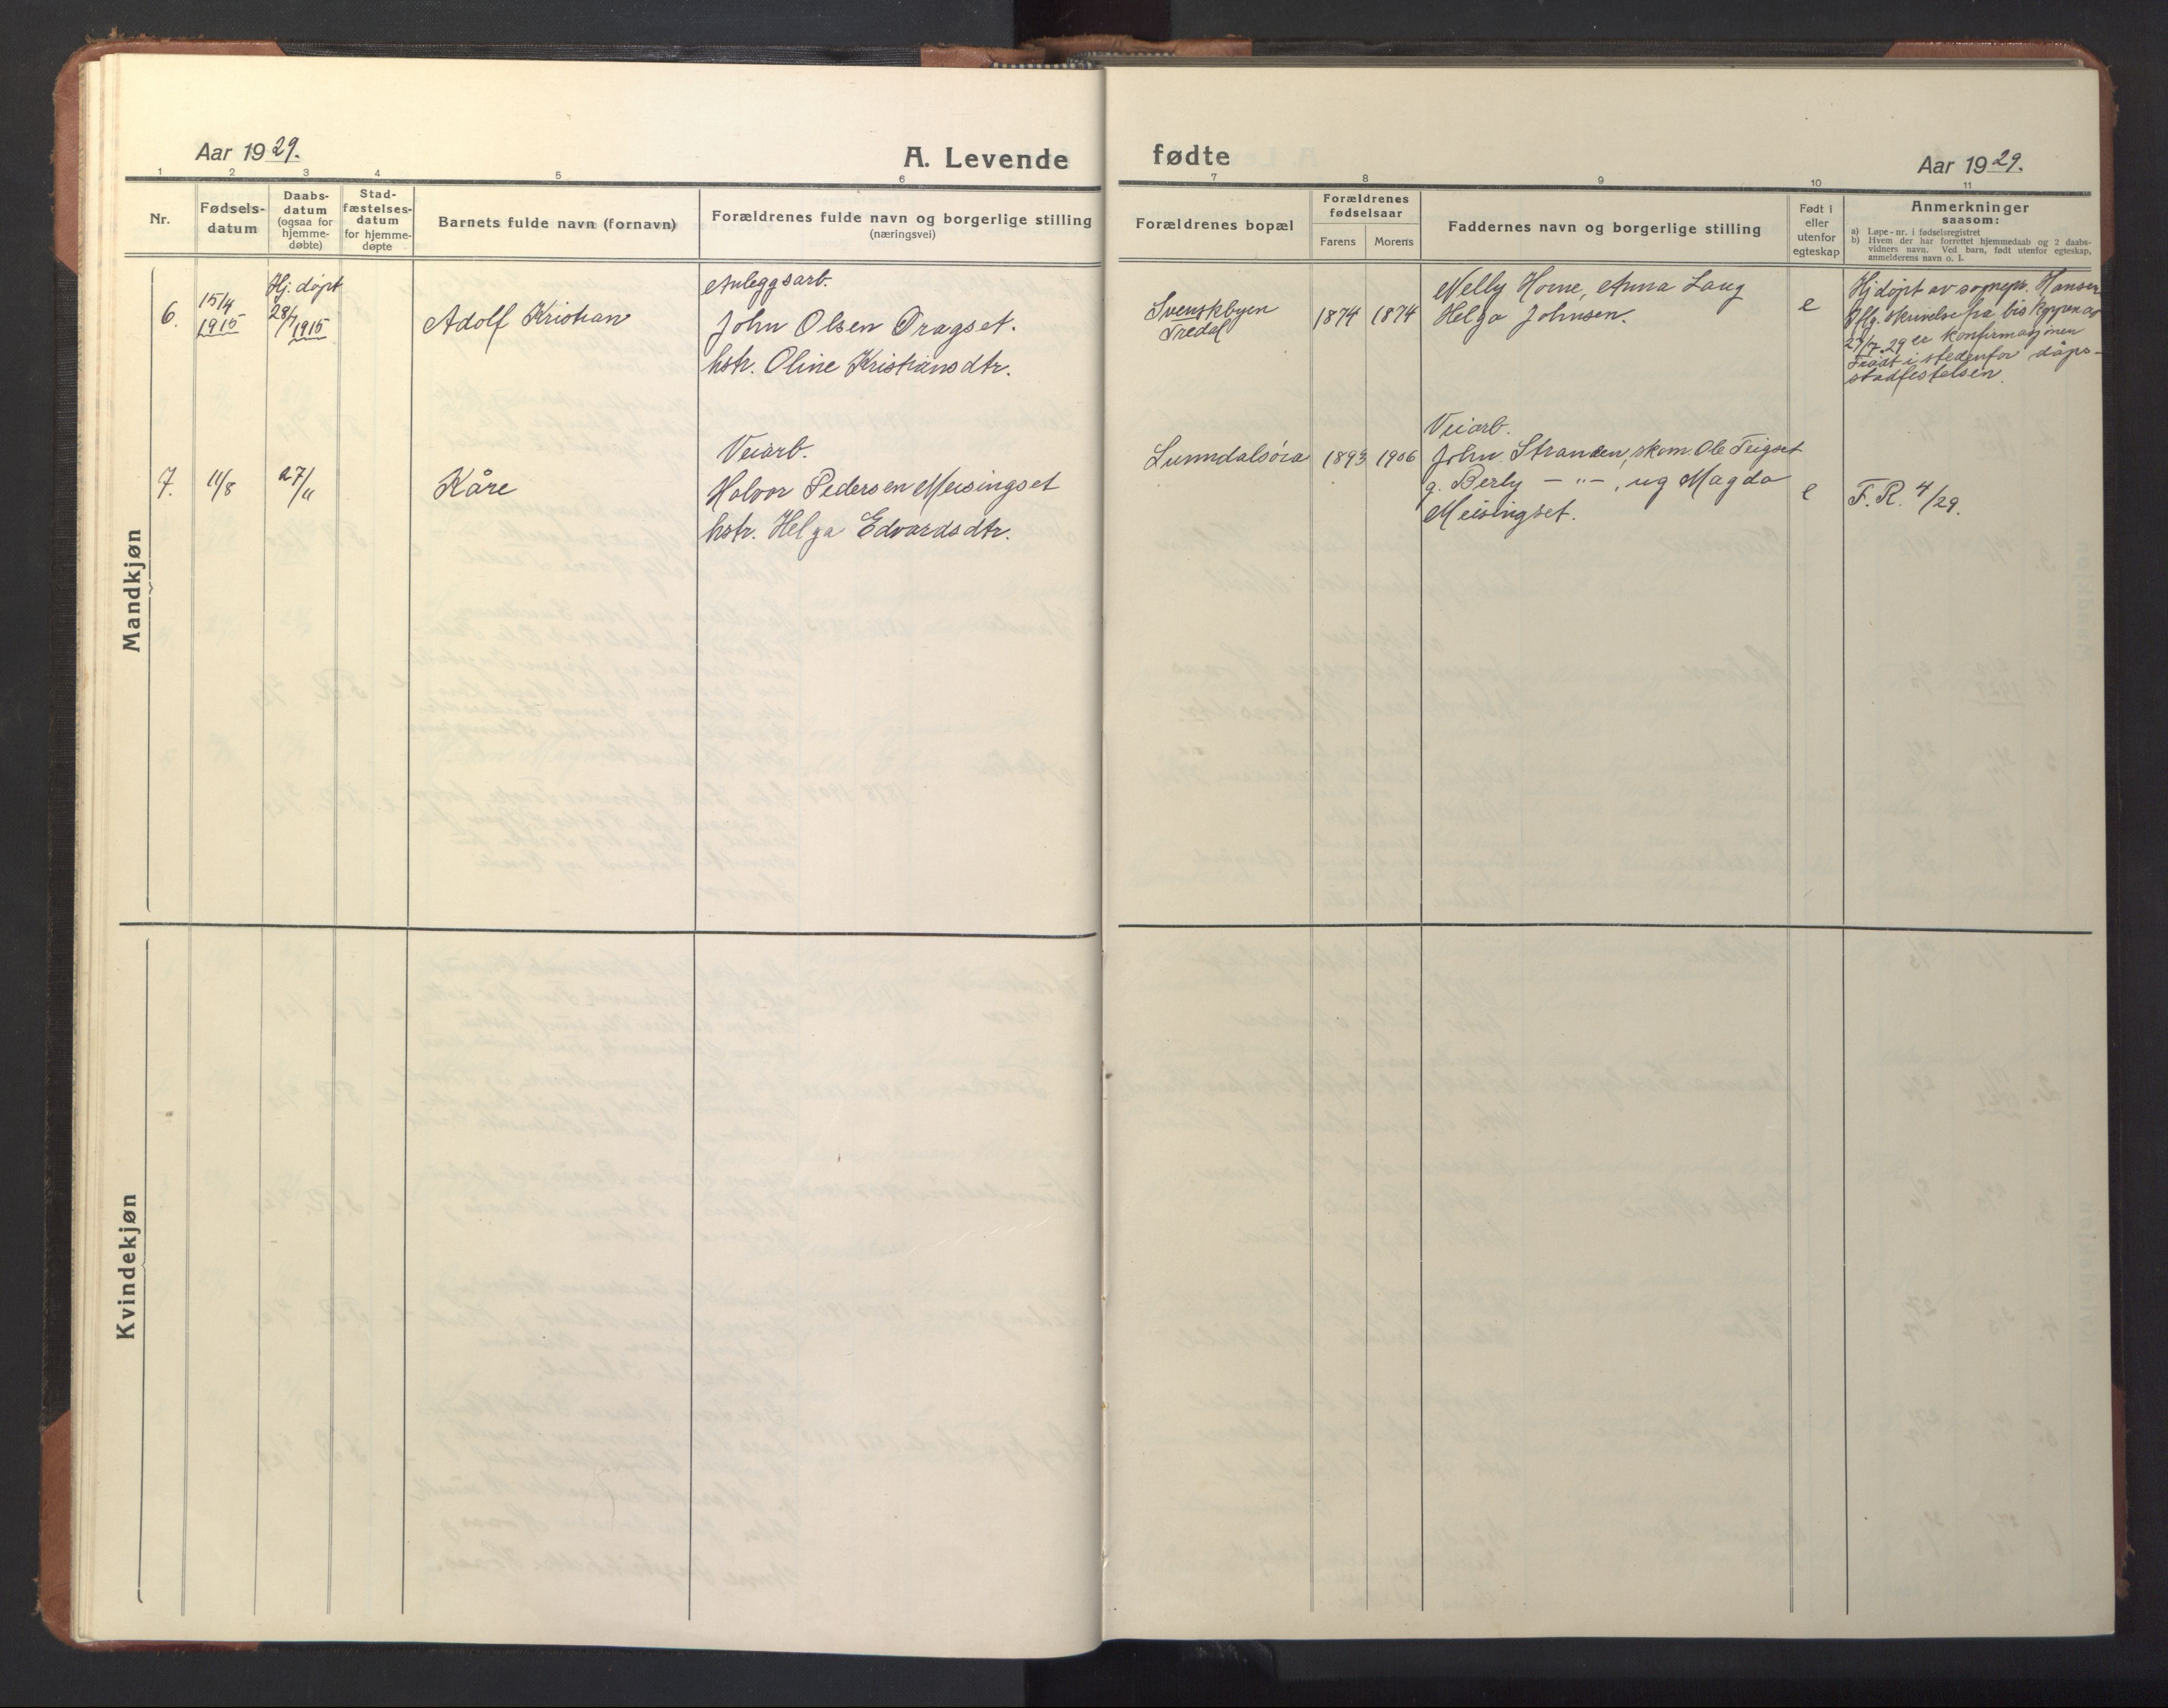 Aar 1929.
A. Levende fødte
Aar 1929.
1 2 3 4 5 6 7 8 9 10 11
Nr.
Fødsels-
datum
Daabs-
datum
(ogsaa for
hjemme-
døbte)
Stad-
fæstelses-
datum
for hjemme-
døpte
Barnets fulde navn (fornavn)
Forældrenes fulde navn og borgerlige stilling
(næringsvei)
Forældrenes bopæl
Forældrenes
fødselsaar
Farens Morens
Faddernes navn og borgerlige stilling
Født i
eller
utenfor
egteskap
Anmerkninger
saasom:
a) Løpe-nr. i fødselsregistret
b) Hvem der har forrettet hjemmedaab og 2 daabs-
vidners navn. Ved barn, født utenfor egteskap,
anmelderens navn o. l.
Mandkjøn
6.
15/4
1915
Hj. døpt
28/4
1915
Adolf Kristian
Anleggsarb.
John Olsen Dragset.
hstr. Oline Kristiansdtr.
Svenskbyen
Tredal
1874 1874
Nelly Horne, Anna Laug
Helga Johnsen.
e
Hjdøpt av sognepr. Hansen
Iflg. skrivelse fra biskoppen av
27/7.29 er konfirmasjonen
Traadt i stedenfor dåps-
stadfestelsen.
7.
11/8
27/11
Kåre
Veiarb.
Halvor Pedersen Meisingset
hstr. Helga Edvardsdtr.
Sunndalsøra
1893 1906
Veiarb.
John Stranden, skom. Ole Teigset
g. Berly — " —, ug Magda
Meisingset.
e
F.R. 4/29.
Kvindekjøn